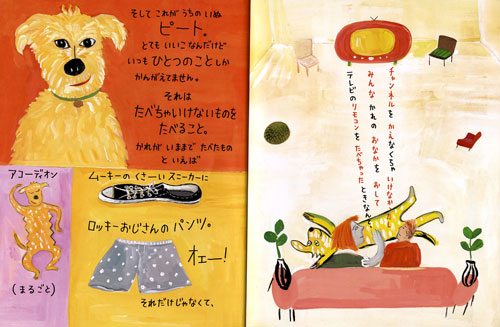 そして これが うちの いぬ
ピート。
とても いいこ なんだけど
いつも ひとつのこと しか
かんがえてません。
それは
たべちゃいけないものを
たべること。
かれが いままで たべたもの
と いえば
アコーディオン
(まるごと)
ムーキーの くさーい スニーカーに
ロッキーおじさんの パンツ。
オエー!
それだけじゃなくて、
テレビの リモコンを たべちゃった ときなん
みんな かれの おなかを おして
チャンネルを かえなくちゃ いけなか